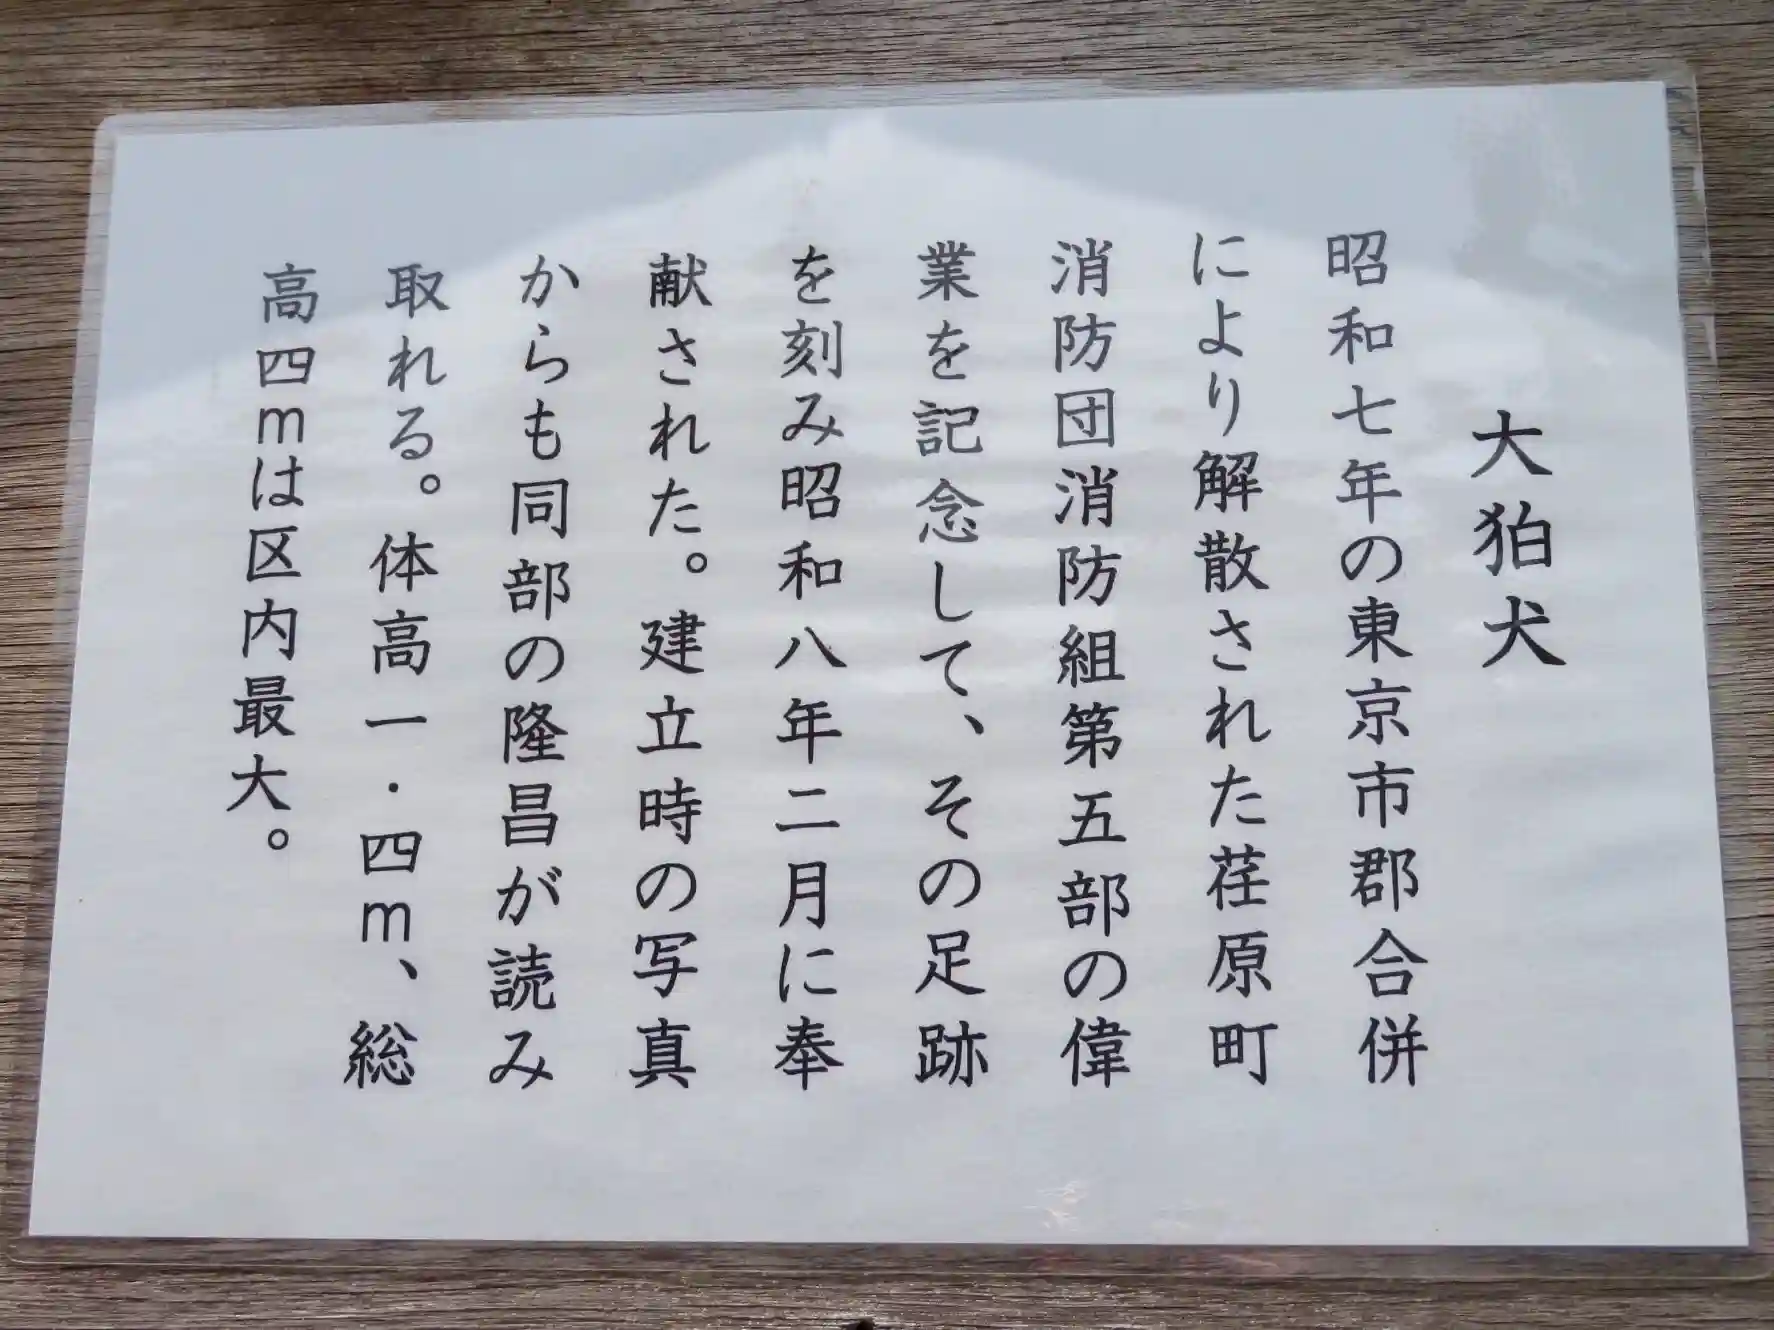 大狛犬
昭和七年の東京市郡合併
により解散された荏原町
消防団消防組第五部の偉
業を記念して、その足跡
を刻み昭和八年二月に奉
献された。建立時の写真
からも同部の隆昌が読み
取れる。体高一・四m、総
高四mは区内最大。